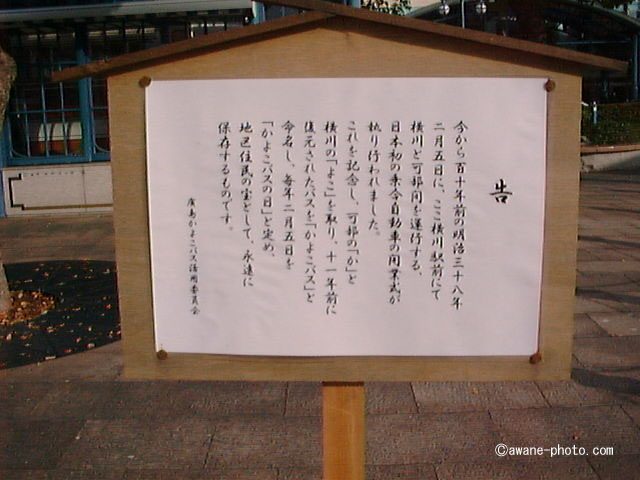 告
今から百十年前の明治三十八年
二月五日に、ここ横川駅前にて
横川と可部間を運行する、
日本初の乗合自動車の開業式が
執り行われました。
これを記念し、可部の「か」と
横川の「よこ」を取り、十一年前に
復元されたバスを「かよこバス」と
命名し、毎年二月五日を
「かよこバスの日」と定め、
地区住民の宝として、永遠に
保存するものです。
廣島かよこバス活用委員会
©awane-photo.com